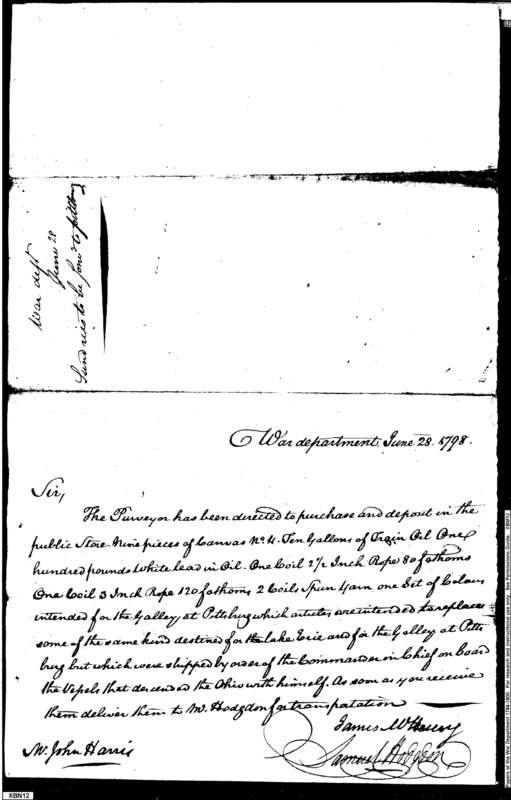 War dept
June 28
Sundries to be forw'd to pittburg
War department, June 28. 1798.
Sir,
The Purveyor has been directed to purchase and deposit in the
public Store Nine pieces of Canvas No. 4. Ten Gallons of Train Oil One
hundred pounds White lead in Oil. One Coil 2½ Inch Rope 80 fathoms
One Coil 3 Inch Rope 120 fathoms 2 Coils Spun Yarn one Set of Colours
intended for the Galley, at Pittsburg which articles are intended to replace
some of the same kind destined for the lake Erie and for the Galley at Pitts
burg but which were shipped by order of the Commander in Chief on board
the Vessels that descended the Ohio with himself. As soon as you receive
them deliver them to Mr. Hodgdon for transportation
James McHenry
Samuel Hodgdon
Mr. John Harris
XBN12